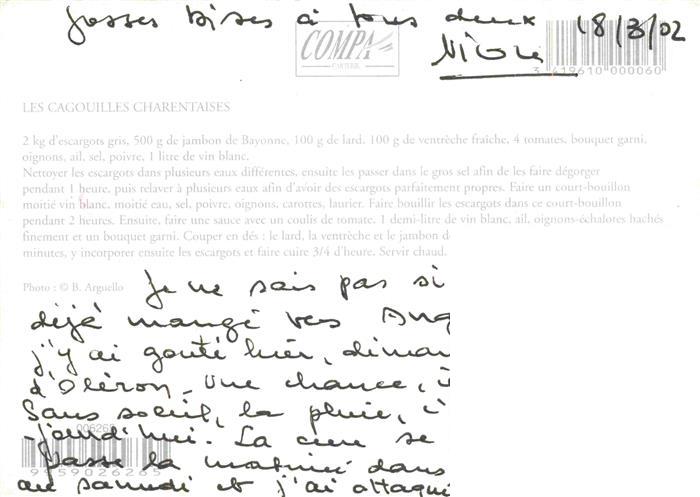 Grosses bises à tous deux
18/3/02
Nicole
COMPA
CARTERIE
3 419610 000060
LES CAGOUILLES CHARENTAISES
2 kg d'escargots gris, 500 g de jambon de Bayonne, 100 g de lard, 100 g de ventrèche fraîche, 4 tomates, bouquet garni,
oignons, ail, sel, poivre, 1 litre de vin blanc.
Nettoyer les escargots dans plusieurs eaux différentes, ensuite les passer dans le gros sel afin de les faire dégorger
pendant 1 heure, puis relaver à plusieurs eaux afin d'avoir des escargots parfaitement propres. Faire un court-bouillon
moitié vin blanc, moitié eau, sel, poivre, oignons, carottes, laurier. Faire bouillir les escargots dans ce court-bouillon
pendant 2 heures. Ensuite, faire une sauce avec un coulis de tomate, 1 demi-litre de vin blanc, ail, oignons-échalores hachés
finement et un bouquet garni. Couper en dés : le lard, la ventrèche et le jambon d
minutes, y incorporer ensuite les escargots et faire cuire 3/4 d'heure. Servir chaud.
Photo : © B. Arguello
Je ne sais pas si
déjà mangé vers Ang
j'y ai goûté hier, diman
d'Oléron. Une chance,
Sans soleil, la pluie,
-jourd'hui. La cure se
006265
passe la matinée dans
9959026265
au samedi et j'ai attaqué